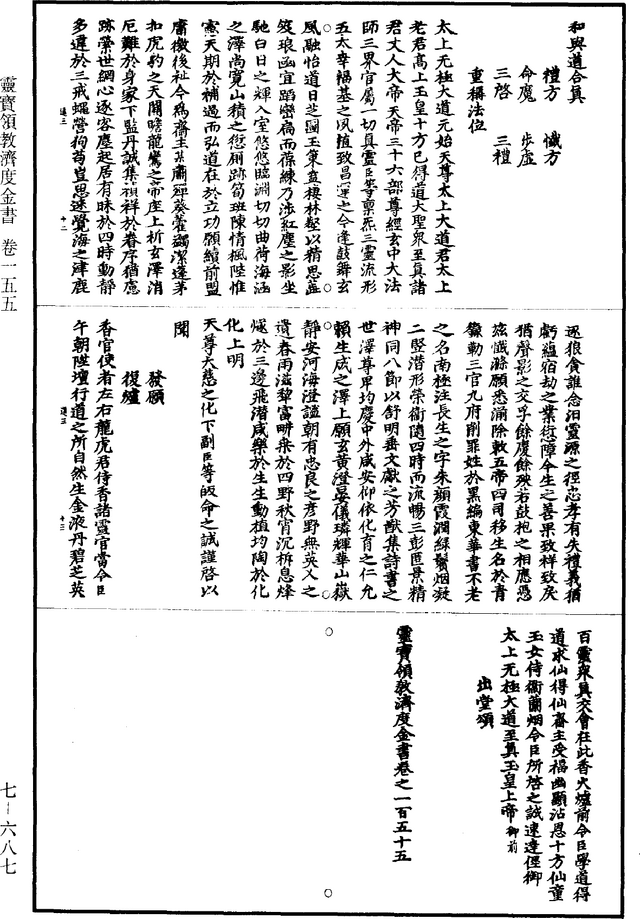 和與道合真
禮方　懺方
命魔　步虛
三啓　三禮
重稱法位
太上无極大道元始天尊太上大道君太上
老君高上玉皇十方已得道大聖衆至真諸
君丈人大帝天帝三十六部尊經玄中大法
師三界官屬一切真靈臣等稟炁三靈流形
五太幸福基之夙植致昌運之今逢鼓舞玄
風融怡道日芝圖玉策益棲林壑以精思蕋
笈琅函宜蹈巒扃而葆練乃涉紅塵之影坐
馳白日之輝入室悠悠臨淵切切曲荷海涵
之澤尚寬山積之愆厠跡笥班陳情楓陛惟
憲天期於補過而弘道在於立功願纘前盟
庸徼後祉今爲齋主某肅經葵藿蠲潔蓬茅
扣虎豹之天閽瞻龍鸞之帝座上祈玄澤消
厄難於身家下監丹誠集禎祥於眷序猶慮
跡縈世網心逐客塵起居有昧於四時動靜
多違於三戒蠅營狗苟豈思速覺海之津鹿
逐狼貪誰念汨靈源之徑忠孝有失禮義猶
虧蘊宿劫之業愆障今生之善果致祥致戾
猶聲影之交孚餘慶餘殃若鼓枹之相應愚
茲懺滌願悉湔除敕五帝四司移生名於青
籙勒三官九府削罪姓於黑編東華書不老
之名南極注長生之字朱顏霞潤綠鬢烟凝
二竪潜形榮衛隨四時而流暢三彭匿景精
神同八節以舒明垂文獻之芳猷集詩書之
世澤尊卑均慶中外咸安仰依化育之仁允
賴生成之澤上願玄黄澄晏儀璘輝華山嶽
静安河海澄謐朝有忠良之彦野無英乂之
遺春雨滋犂富畊桑於四野秋宵沉柝息烽
燧於三邊飛潜咸樂於生生動植均陶於化
化上明
天尊大慈之化下副臣等皈命之誠謹啓以
聞
發願
復爐
香官使者左右龍虎君侍香諸靈官當令臣
午朝陞壇行道之所自然生金液丹碧芝英
百靈衆真交會在此香火爐前令臣學道得
道求仙得仙齋主受福幽顯沾恩十方仙童
玉女侍衛蘭烟令臣所啓之誠速達徑御
太上无極大道至真玉皇上帝御前
出堂頌
靈寶領教濟度金書卷之一百五十五
靈寶領教濟度金書　卷一五五
七—六八七